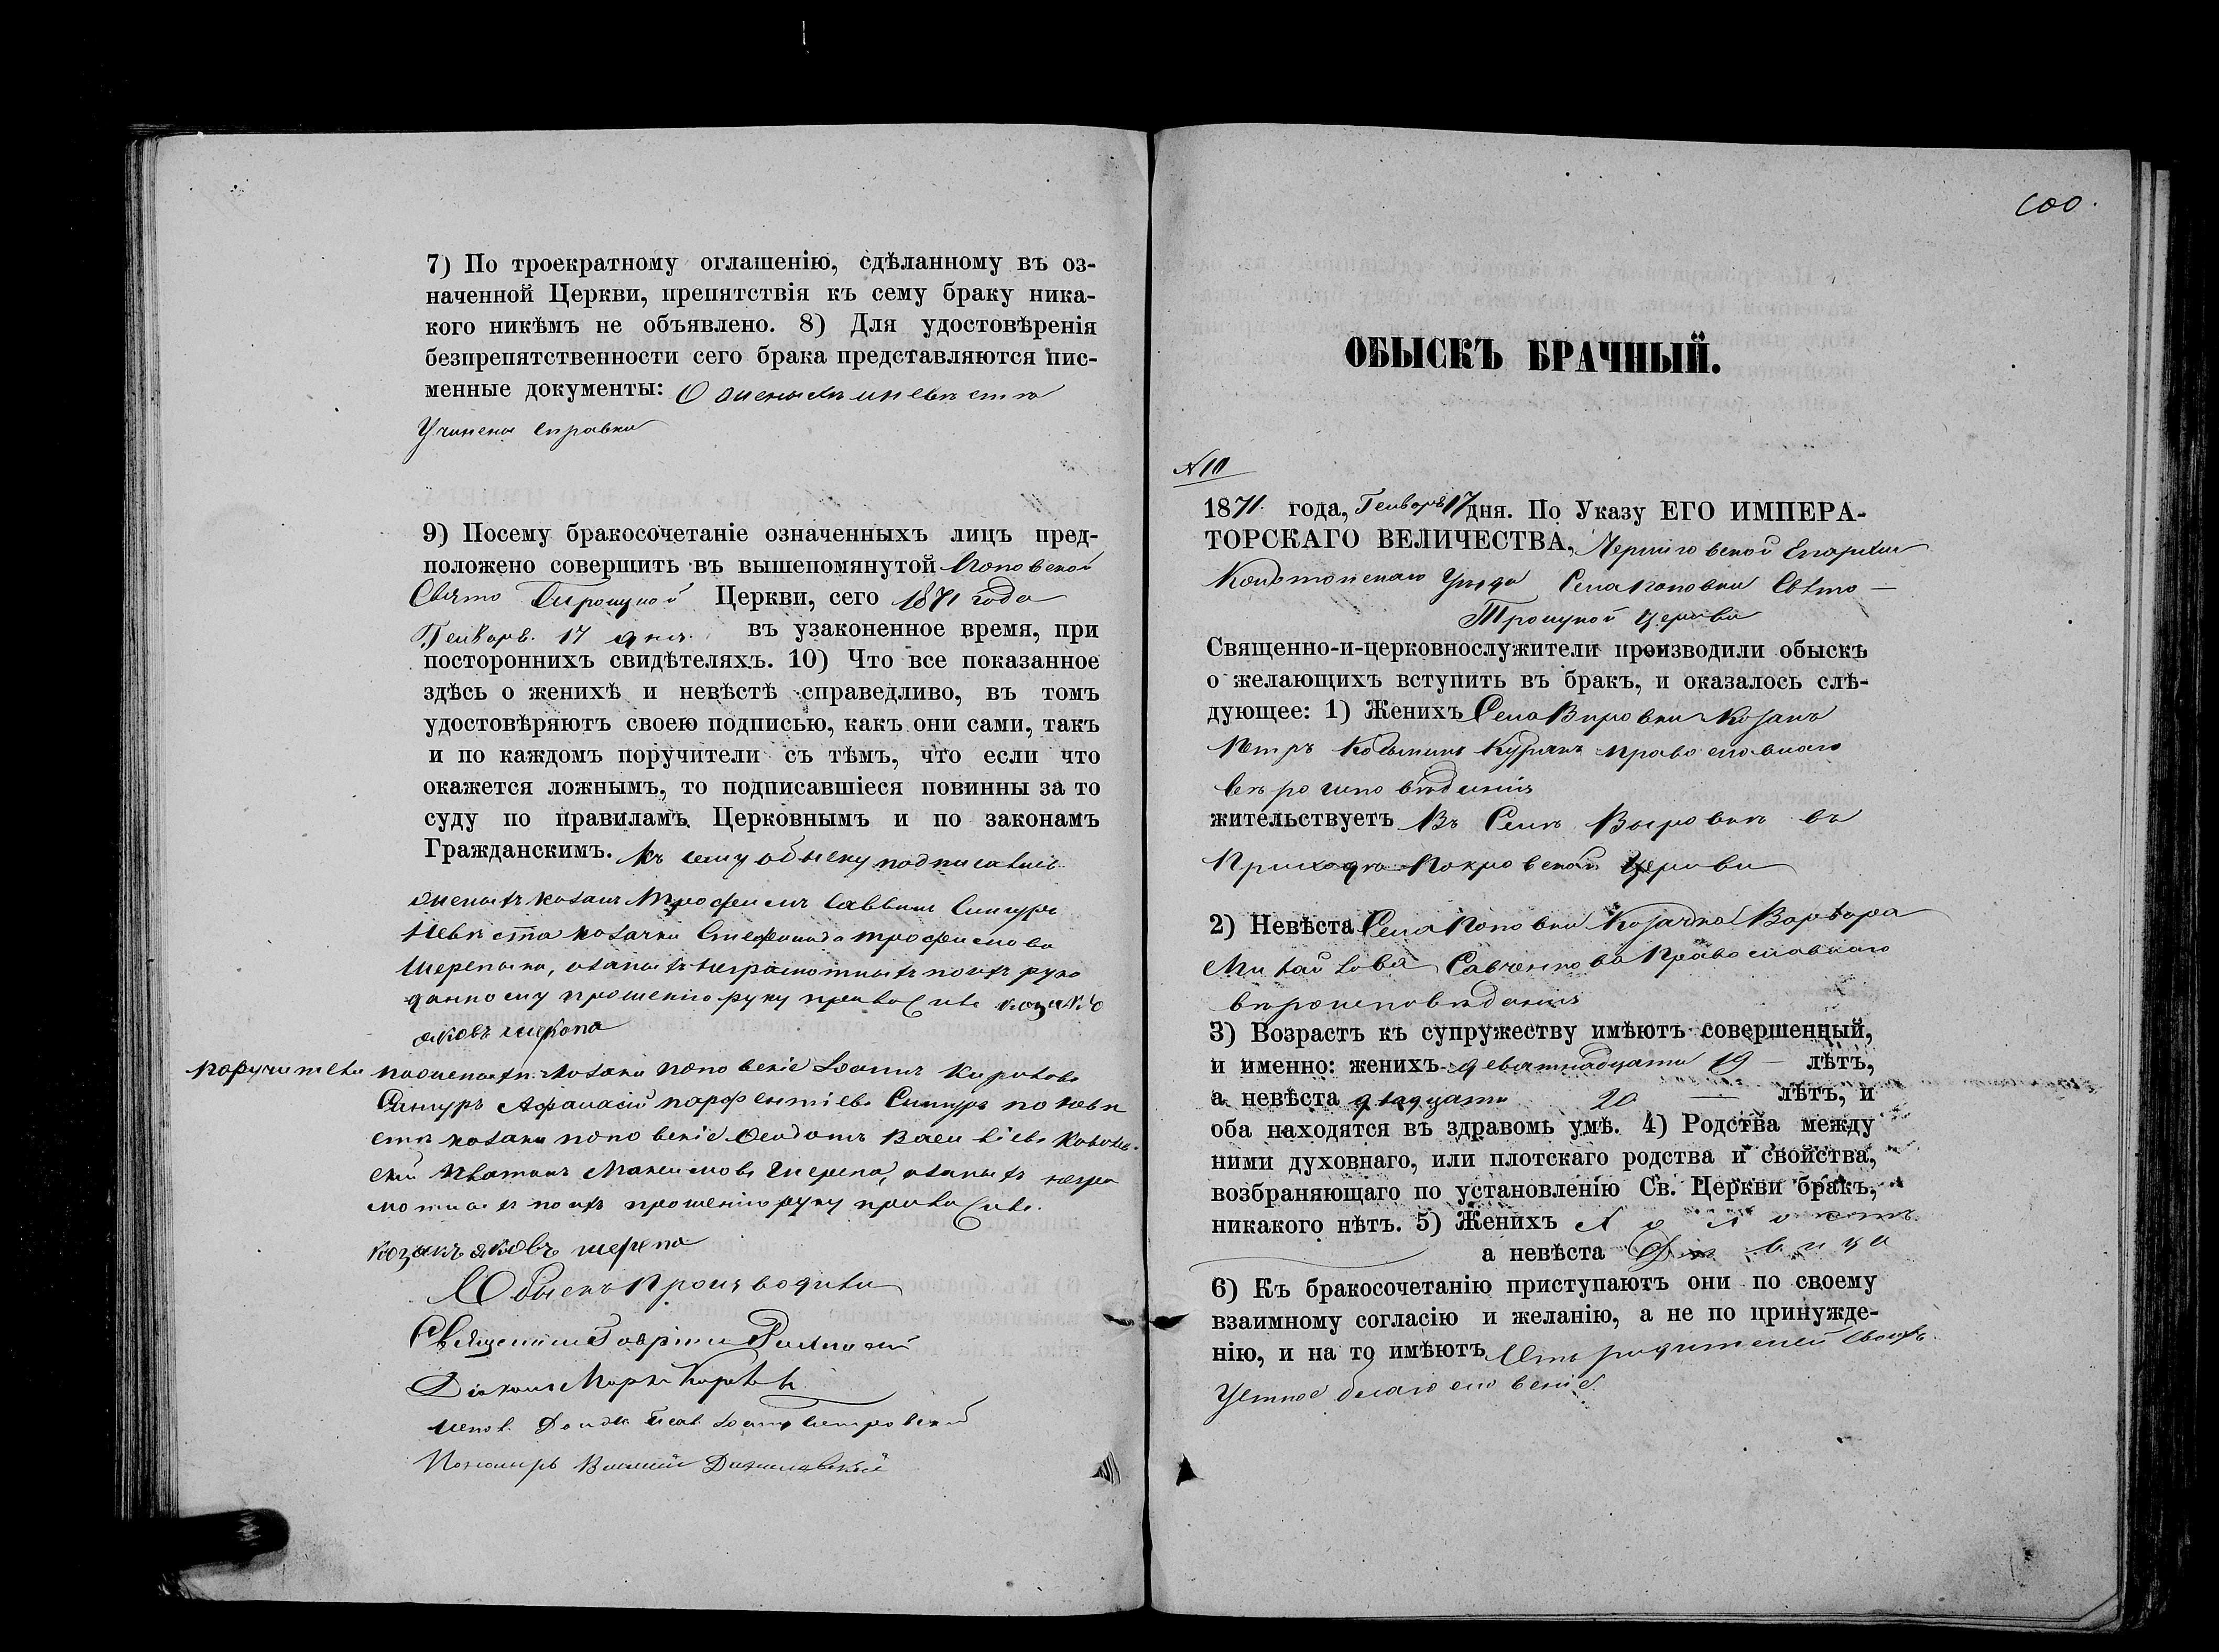 7) По троекратному оглашенію, сдѣланному въ оз-
наченной Церкви, препятствія къ сему браку ника-
кого никѣмъ не объявлено. 8) Для удостовѣренія
безпрепятственности сего брака представляются пис-
менные документы: О женихѣ и невѣстѣ
Учинены справки
9) Посему бракосочетаніе означенныхъ лицъ пред-
положено совершить въ вышепомянутой Поповской
Свято Троицкой Церкви, сего 1871 года
Генваря 17 дня въ узаконенное время, при
постороннихъ свидѣтеляхъ. 10) Что все показанное
здѣсь о женихѣ и невѣстѣ справедливо, въ томъ
удостовѣряютъ своею подписью, какъ они сами, такъ
и по каждомъ поручители съ тѣмъ, что если что
окажется ложнымъ, то подписавшіеся повинны за то
суду по правиламъ Церковнымъ и по законамъ
Гражданскимъ. Къ сему обыску подписались
женихъ козакъ Трофимъ Саввинъ Сингуръ
Невѣста козачка Стефанида Трофимова
Шерепына, а за нихъ неграмотныхъ по ихъ руко
данному прошенію руку приложилъ козакъ
яковъ шерепа
поручители по женихѣ козаки поповскіе Іоаннъ Кириловъ
Сингуръ Афанасій Парфентіевъ Сингуръ по невѣ
стѣ козаки поповскіе Феодотъ
Максимовъ Шерепа, а за нихъ негра
мотныхъ по ихъ прошенію руку приложилъ
козакъ яковъ шерепа
Обыскъ производили
Священникъ
Діаконъ
Іоаннъ Петровскій
Пономарь
100.
ОБЫСКЪ БРАЧНЫЙ.
N 10
1871. года, Генваря 17 дня. По Указу ЕГО ИМПЕРА-
ТОРСКАГО ВЕЛИЧЕСТВА, Черниговской Епархіи
Конотопскаго Уѣзда Села Поповки Свято —
Троицкой Церкви
Священно-и-церковнослужители производили обыскъ
о желающихъ вступить въ бракъ, и оказалось слѣ-
дующее: 1) Женихъ Села Вировки Козакъ
Петръ Козьминъ православнаго
вѣроисповѣданія
жительствуетъ Въ Селѣ Выровкѣ въ
Приходѣ Покровской Церкви
2) Невѣста Села Поповки Козачка Варвара
Михайлова Савченкова Православнаго
вѣроисповѣданія
3) Возрастъ къ супружеству имѣютъ совершенный,
и именно: женихъ девятнадцати 19 — лѣтъ,
а невѣста двадцати 20 — лѣтъ, и
оба находятся въ здравомъ умѣ. 4) Родства между
ними духовнаго, или плотскаго родства и свойства,
возбраняющаго по установленію Св. Церкви бракъ,
никакого нѣтъ. 5) Женихъ Холостъ
а невѣста Дѣвица
6) Къ бракосочетанію приступаютъ они по своему
взаимному согласію и желанію, а не по принужде-
нію, и на то имѣютъ Отъ родителей своихъ
Устное благословеніе.